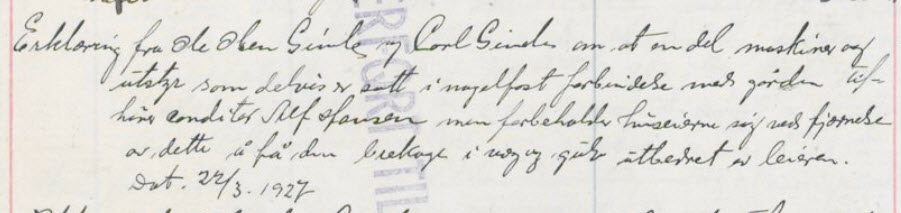 Erklæring fra Ole Olsen Gimle og Carl Gimle om at en del maskiner og
utstyr som delvis er satt i nagelfast forbindelse med gården til-
hører conditor Alf Hansen men forbeholder huseierne sig ved fjernelse
av dette å få den brekage i væg og gulv utbedret av leieren.
Dat. 22/3. 1927
ERFORT TIL